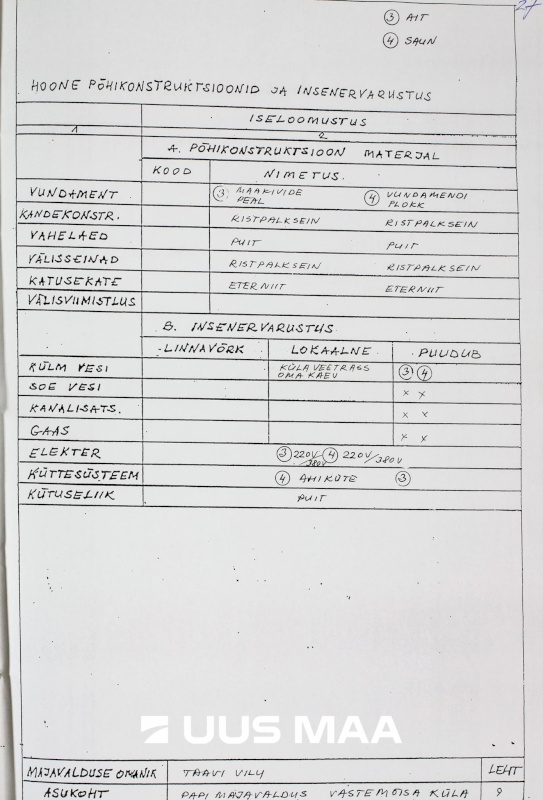 27
③ AIT
④ SAUN
HOONE PÕHIKONSTRUKTSIOONID JA INSENERVARUSTUS
ISELOOMUSTUS
1 2
A. PÕHIKONSTRUKTSIOON MATERJAL
KOOD NIMETUS.
VUNDAMENT ③ MAAKIVIDE PEAL ④ VUNDAMENDI PLOKK
KANDEKONSTR. RISTPALKSEIN RISTPALKSEIN
VAHELAED PUIT PUIT
VÄLISSEINAD RISTPALKSEIN RISTPALKSEIN
KATUSEKATE ETERNIIT ETERNIIT
VÄLISVIIMISTLUS
B. INSENERVARUSTUS.
LINNAVÕRK LOKAALNE PUUDUB
KÜLM VESI KÜLA VEETRASS OMA KAEV ③ ④
SOE VESI × ×
KANALISATS. × ×
GAAS × ×
ELEKTER ③ 220V/380V ④ 220V/380V
KÜTTESÜSTEEM ④ AHIKÜTE ③
KÜTUSELIIK PUIT
UUS MAA
MAJAVALDUSE OMANIK TAAVI VILY LEHT
ASUKOHT PAPI MAJAVALDUS VASTEMÕISA KÜLA 9